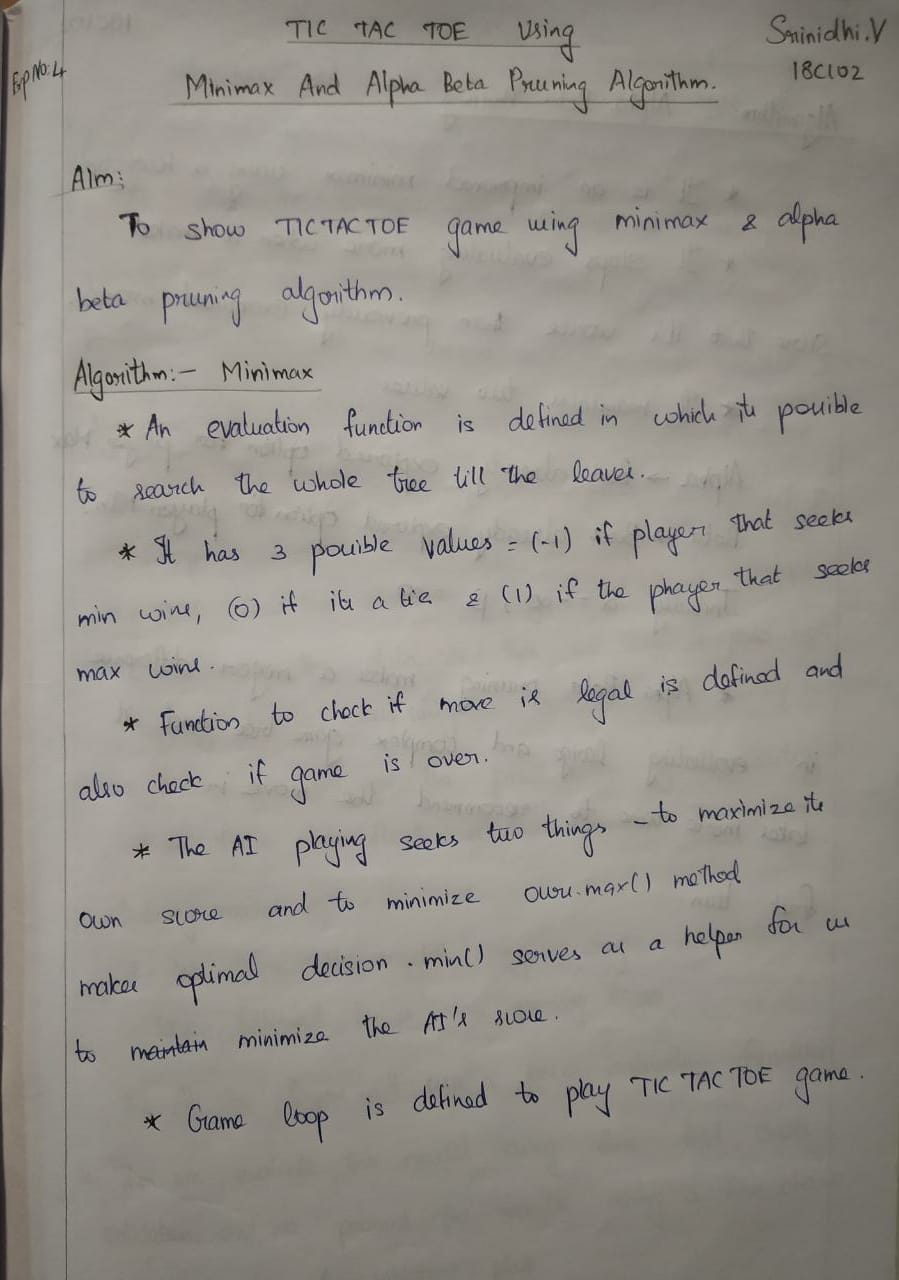 TIC TAC TOE Using
Srinidhi.V
Exp No: 4
18CI02
Minimax And Alpha Beta Pruning Algorithm.
Aim:
To show TIC TAC TOE game using minimax & alpha
beta pruning algorithm.
Algorithm:- Minimax
* An evaluation function is defined in which its possible
to search the whole tree till the leaves.
* It has 3 possible values = (-1) if player that seeks
min wins, (0) if its a tie & (1) if the phayer that seeks
max wins.
* Function to check if move is legal is defined and
also check if game is over.
* The AI playing seeks two things - to maximize its
own score and to minimize ours. max() method
makes optimal decision. min() serves as a helper for us
to maintain minimize the AI's score.
* Game loop is defined to play TIC TAC TOE game.